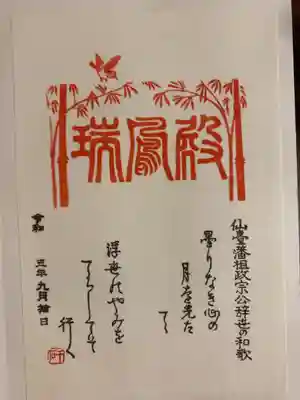 瑞鳳殿
仙臺藩祖政宗公辞世の和歌
曇りなき心の
月を先た
てゝ
浮世のやみを
てらしてそ
行く
令和三年九月拾日